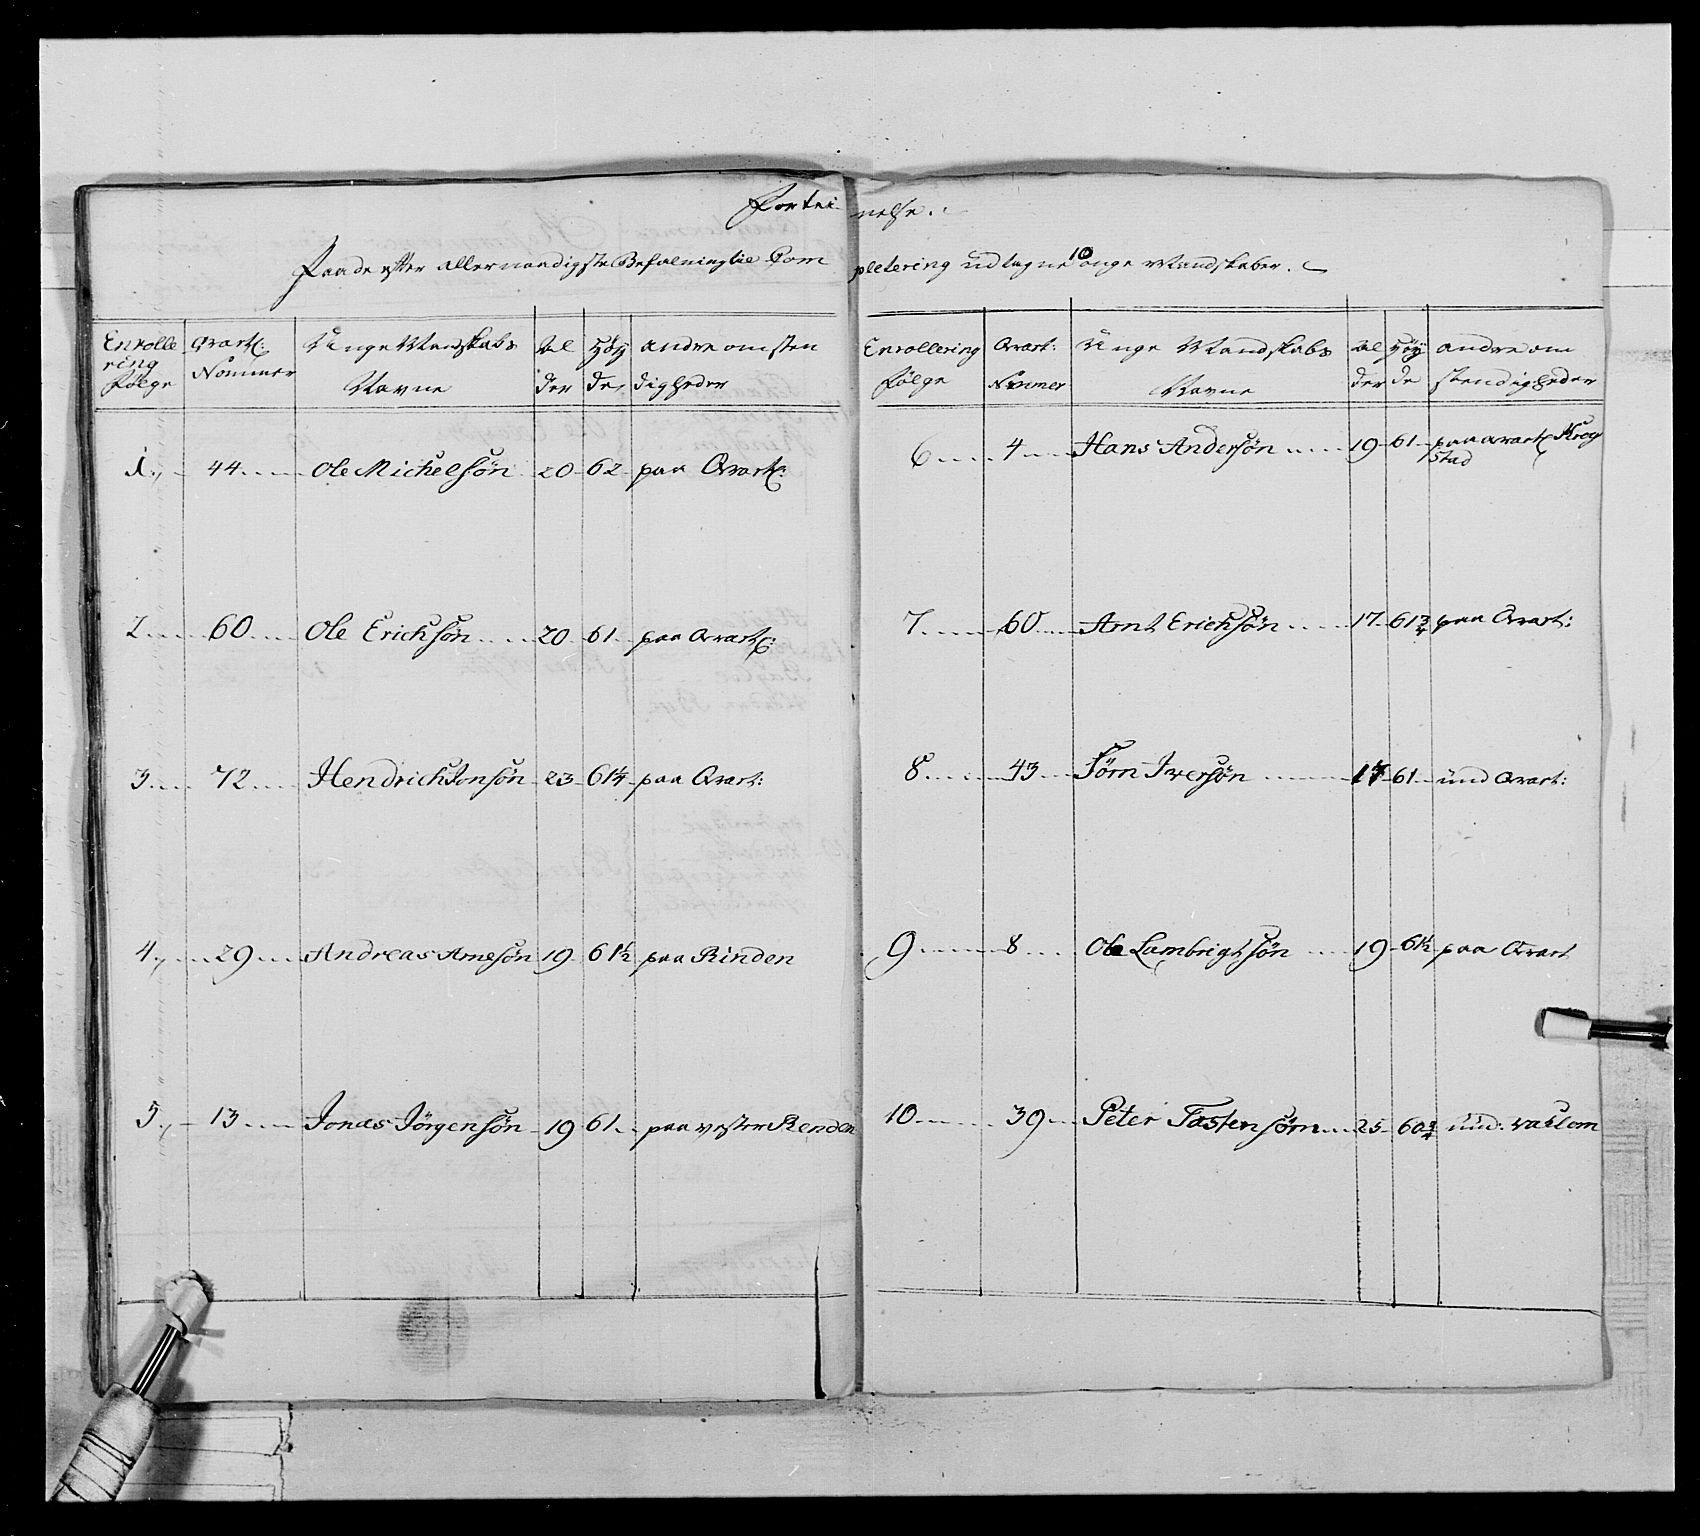 Fortei nelse.
Paa de efter allernaadigste Befalning til Com pletering udtagne 10 unge Mandskaber.
Enrolle ring Følge | Qvart: Nommer | Unge Mandskabs Navne | Al der | Høy de, | andre omsten digheder
1., 44 Ole Michelsøn 20 62 paa Qvart:
2 60 Ole Erichsøn 20 61 paa Qvart:
3 72 Hendrich Jonsøn 23 61¼ paa Qvart:
4., 29 Andreas Arnesøn 19 61½ paa Rinden
5., 13 Jonas Jörgensøn 19 61 paa vester Renden
Enrollering Følge | Qvart: Nommer | Unge Mandskabs Navne | Al der | Høy de | andre om stendigheder
6 4 Hans Andersøn 19 61 paa qvart: Krog
stad
7 60 Arnt Erichsøn 17 61¾ paa Qvart:
8 43 Törn Iversøn 17 61 und Qvart:
9 8 Ole Lambrigtsøn 19 61½ paa Qvart
10 39 Peter Tostensøn 25 60¾ und: